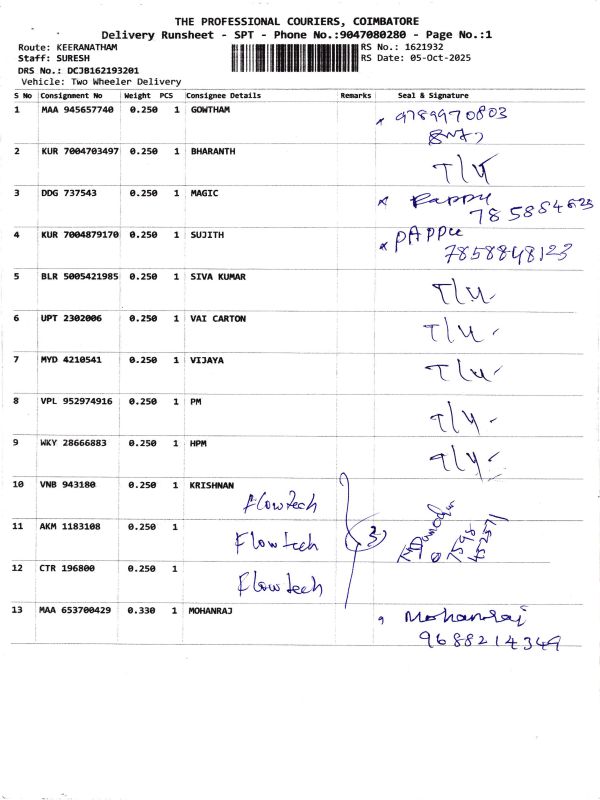 THE PROFESSIONAL COURIERS, COIMBATORE
Delivery Runsheet - SPT - Phone No.:9047080280 - Page No.:1
Route: KEERANATHAM RS No.: 1621932
Staff: SURESH RS Date: 05-Oct-2025
DRS No.: DCJB162193201
Vehicle: Two Wheeler Delivery
S No Consignment No Weight PCS Consignee Details Remarks Seal & Signature
1 MAA 945657740 0.250 1 GOWTHAM 9789970803
2 KUR 7004703497 0.250 1 BHARANTH T/V
3 DDG 737543 0.250 1 MAGIC Pappu
4 KUR 7004879170 0.250 1 SUJITH PAPPU
7858848123
5 BLR 5005421985 0.250 1 SIVA KUMAR
6 UPT 2302006 0.250 1 VAI CARTON
7 MYD 4210541 0.250 1 VIJAYA
8 VPL 952974916 0.250 1 PM
9 WKY 28666883 0.250 1 HPM
10 VNB 943180 0.250 1 KRISHNAN
Flowtech
11 AKM 1183108 0.250 1
Flowtech 3
12 CTR 196800 0.250 1
Flowtech
13 MAA 653700429 0.330 1 MOHANRAJ Mohanraj
9688214349